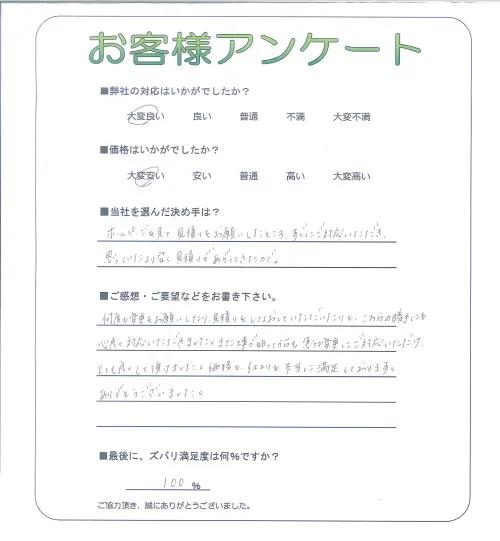 お客様アンケート
■弊社の対応はいかがでしたか？
大変良い 良い 普通 不満 大変不満
■価格はいかがでしたか？
大変安い 安い 普通 高い 大変高い
■当社を選んだ決め手は？
ホームページを見て見積りをお願いしたところ、すぐにご対応いただき、
思っていたより安く見積りがあがってきたので。
■ご感想・ご要望などをお書き下さい。
何度も変更をお願いしたり、見積りをしなおしていただいたりと、こちらの勝手にも
心良く対応いただきました。また工事が始まってからも 変更にご対応いただけ、
とても良くして頂けました。価格も、仕上りも本当に満足しております。
ありがとうございました。
■最後に、ズバリ満足度は何％ですか？
100 %
ご協力頂き、誠にありがとうございました。